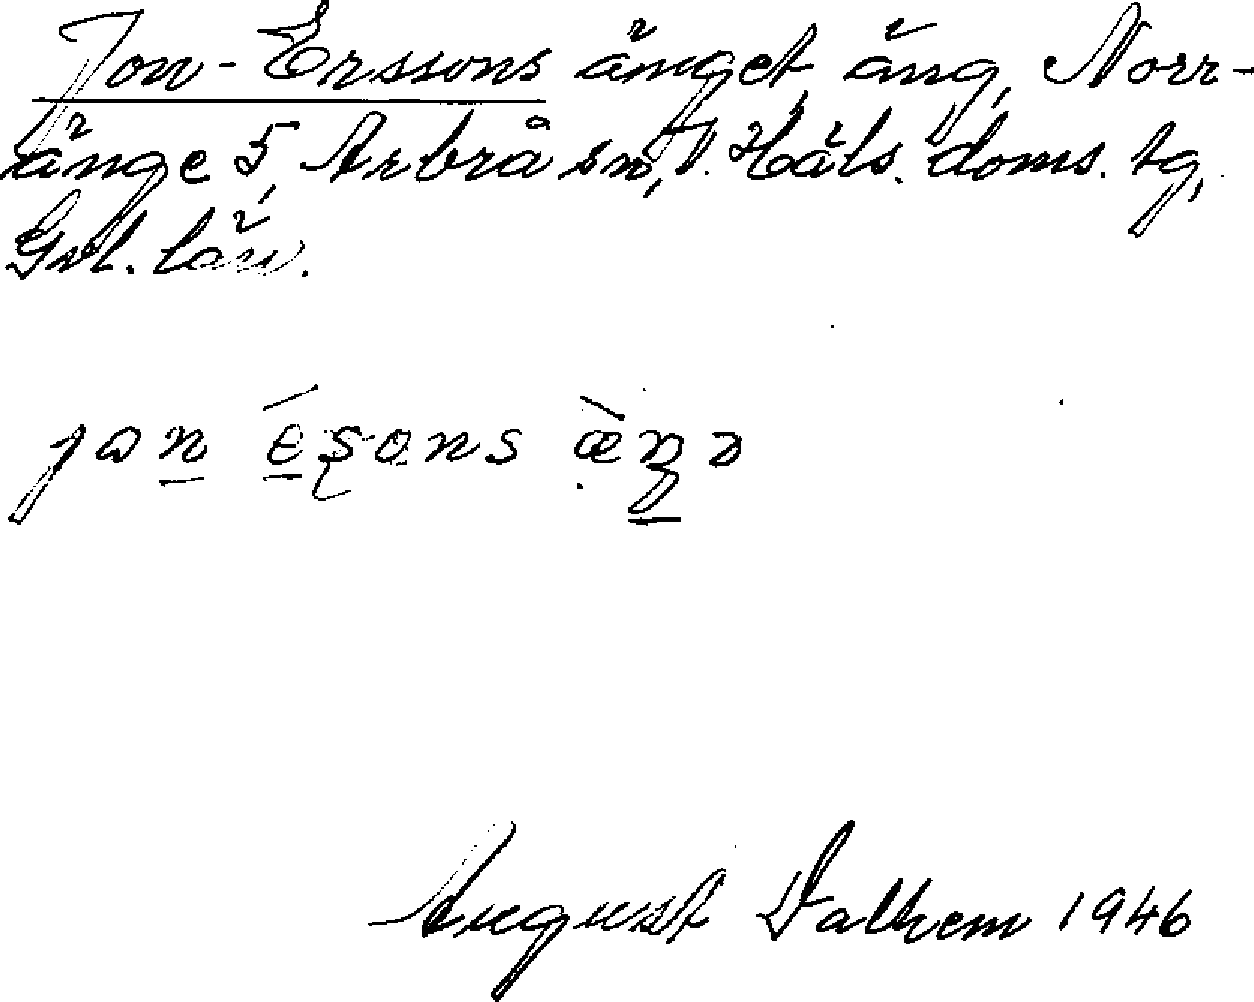 Jon-Erssons änget, äng, Norr-
änge 5, Arbrå sn, V. Häls. doms. tg,
Gvl. län.
jon ésons æ̀ŋə
August Dalhem 1946